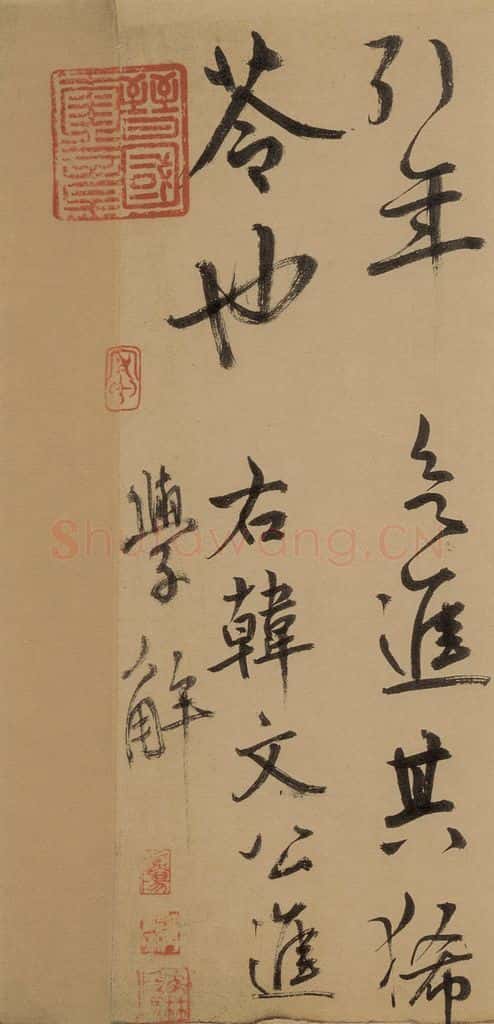 引年欲進其豨
苓也
右韓文公進
學解
晉國奎章
Shufawang.CN